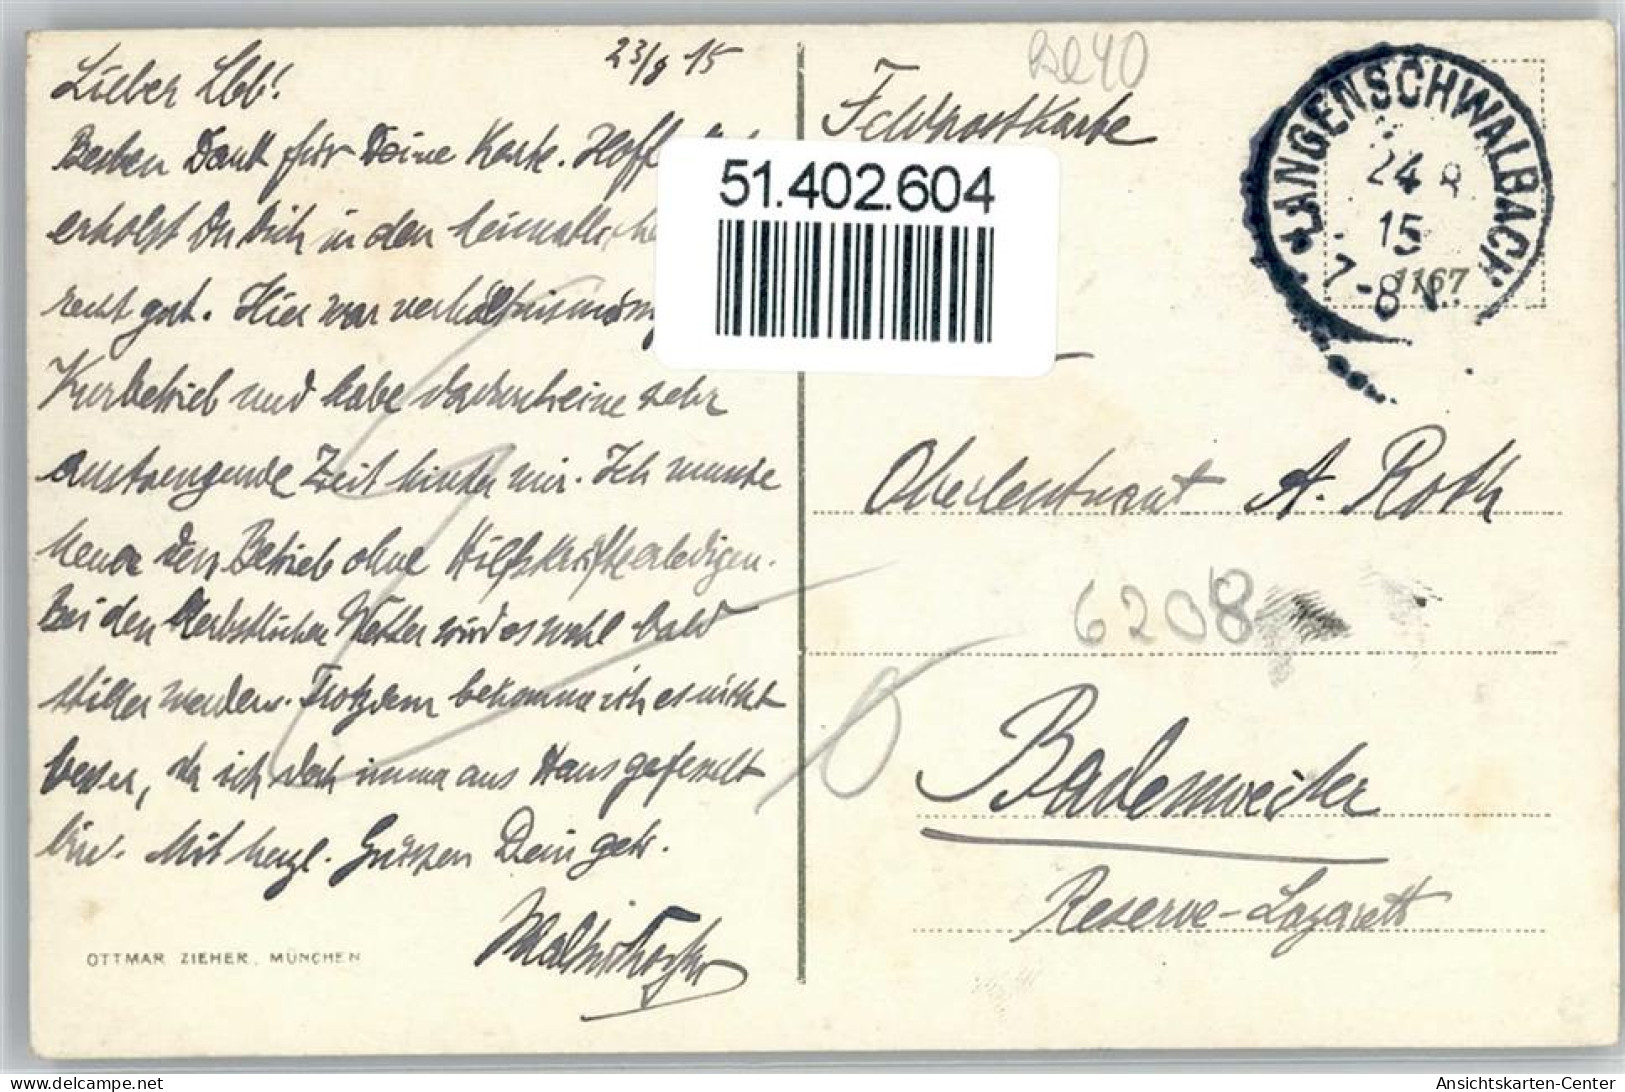 23/8 15
Lieber Abb!
Besten Dank für Deine Karte. Hoffentl.
erholst Du Dich in den heimatlichen
recht gut. Hier war verhältnismässig
Kurbetrieb und habe dadurch eine sehr
anstrengende Zeit hinter mir. Ich musste
heuer den Betrieb ohne Hilfskräfte erledigen.
Bei dem herbstlichen Wetter wird es wohl bald
stiller werden. Trotzdem bekomme ich es nicht
besser, da ich doch immer ans Haus gefesselt
bin. Mit herzl. Grüssen Dein getr.
OTTMAR ZIEHER, MÜNCHEN
51.402.604
Be40
Feldpostkarte
LANGENSCHWALBACH
24 8
15
7-8 N.
1167
Oberleutnant A. Roth
6208
Badenweiler
Reserve-Lazarett
delcampe.net
Ansichtskarten-Center